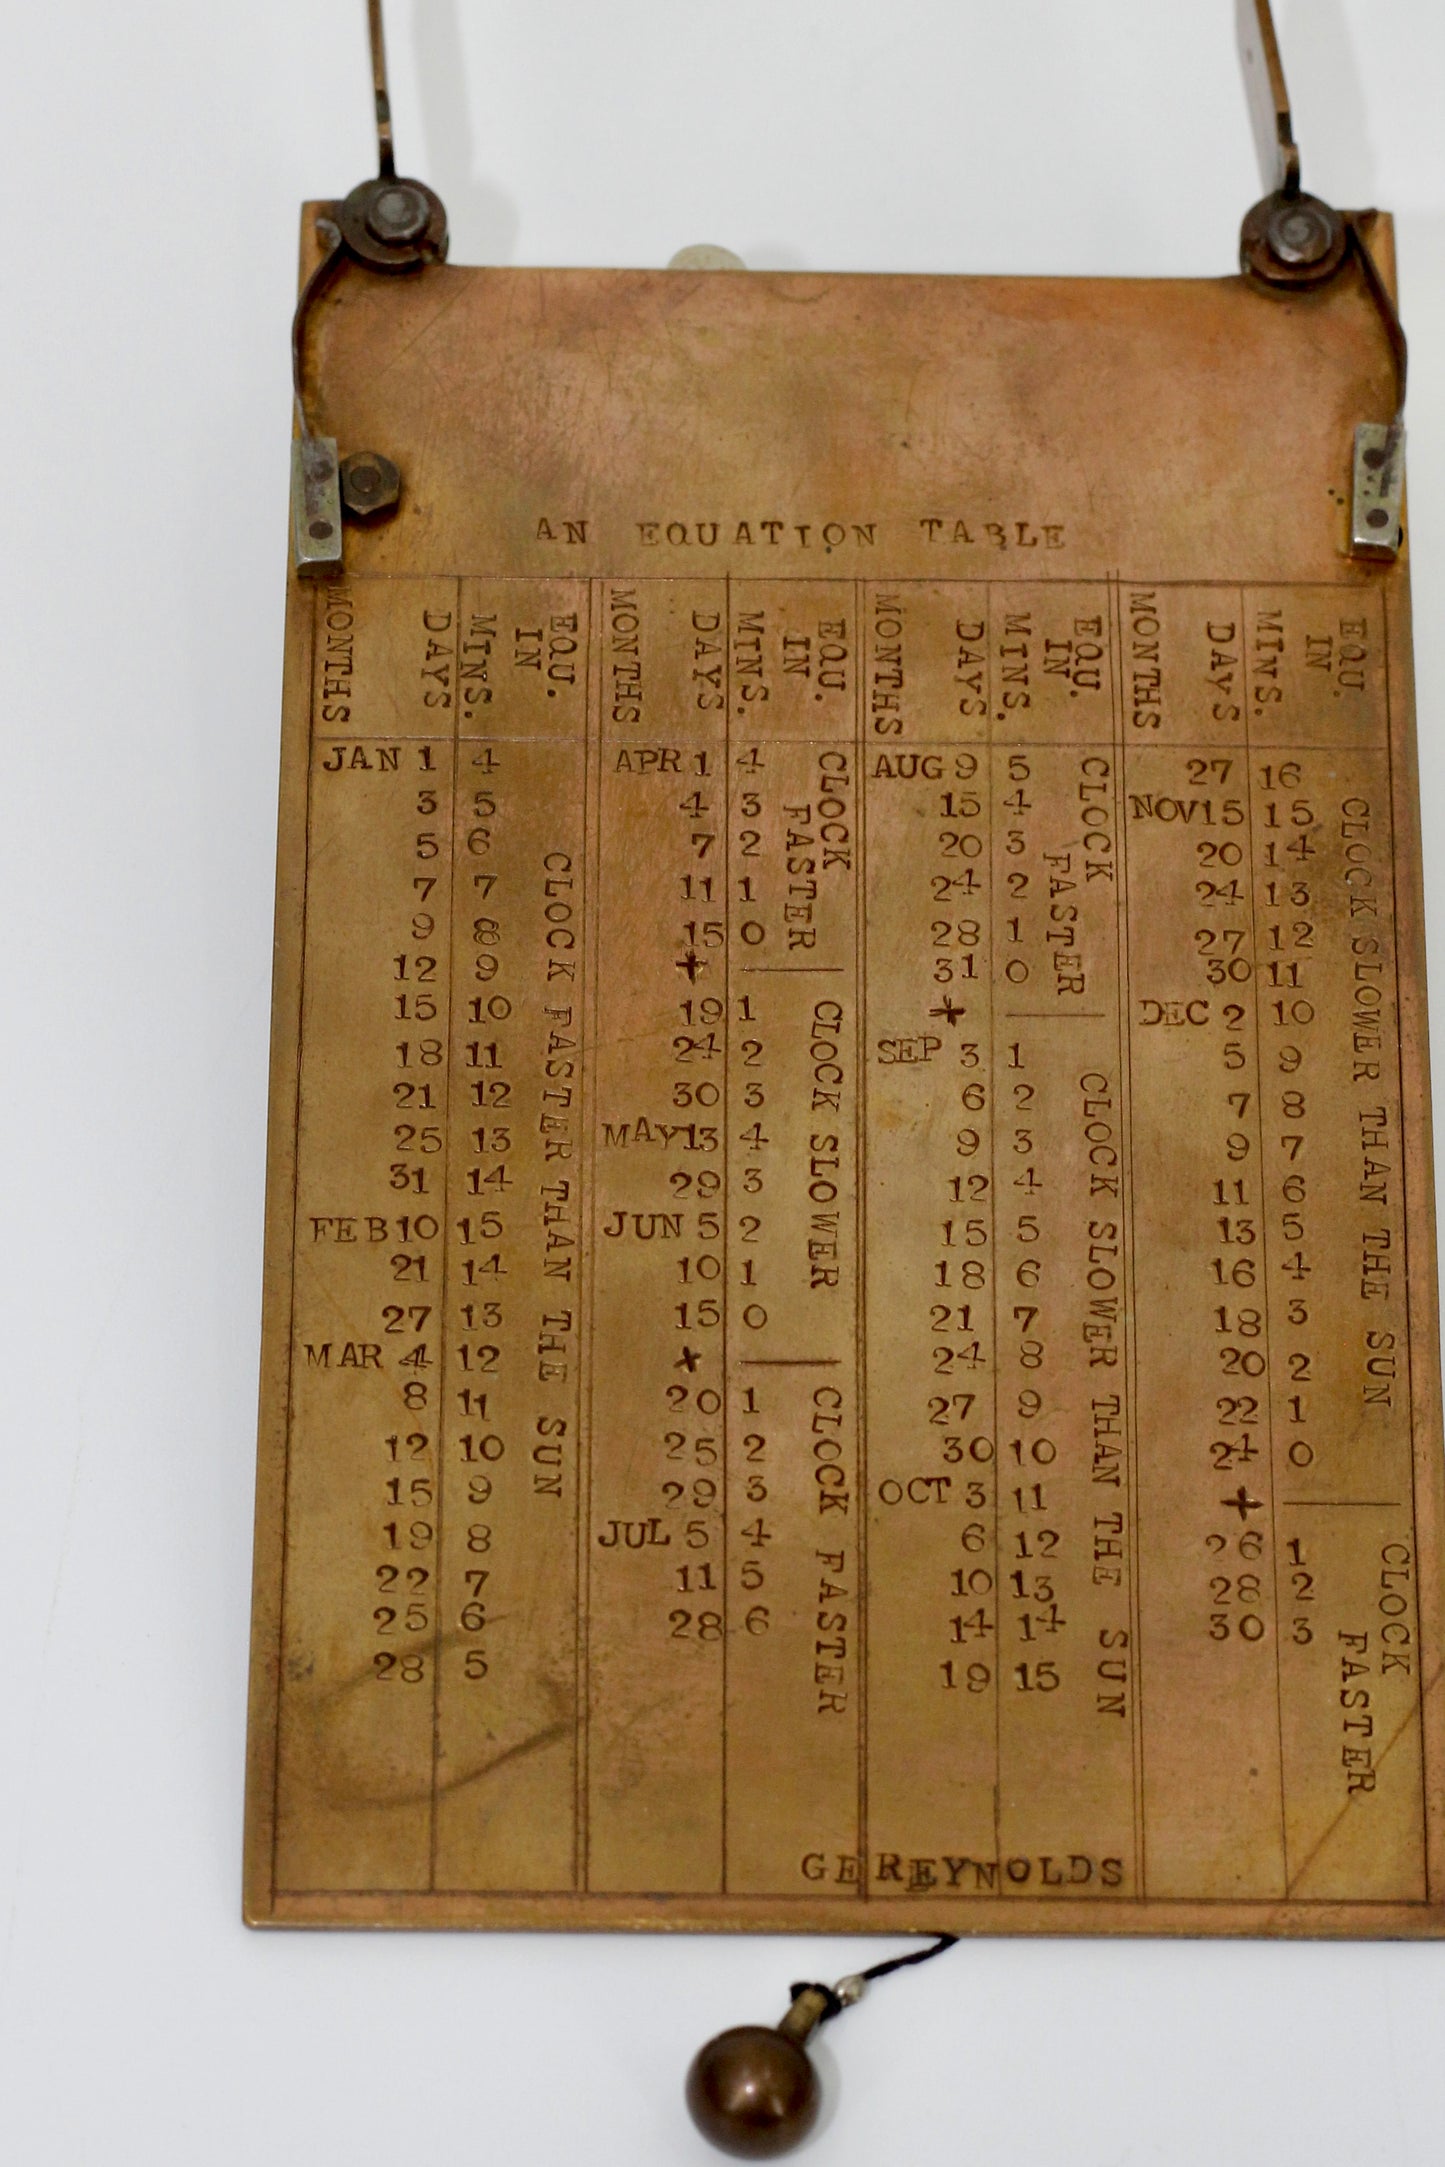 AN EQUATION TABLE
MONTHS DAYS MINS. IN EQU. MONTHS DAYS MINS. IN EQU. MONTHS DAYS MINS. IN EQU. MONTHS DAYS MINS. IN EQU.
JAN 1 4
3 5
5 6
7 7
9 8
12 9
15 10
18 11
21 12
25 13
31 14
FEB 10 15
21 14
27 13
MAR 4 12
8 11
12 10
15 9
19 8
22 7
25 6
28 5
CLOCK FASTER THAN THE SUN
APR 1 4
4 3
7 2
11 1
15 0
+
19 1
24 2
30 3
MAY 13 4
29 3
JUN 5 2
10 1
15 0
+
20 1
25 2
29 3
JUL 5 4
11 5
28 6
CLOCK
FASTER
CLOCK SLOWER
CLOCK FASTER
AUG 9 5
15 4
20 3
24 2
28 1
31 0
+
SEP 3 1
6 2
9 3
12 4
15 5
18 6
21 7
24 8
27 9
30 10
OCT 3 11
6 12
10 13
14 14
19 15
CLOCK
FASTER
CLOCK SLOWER THAN THE SUN
27 16
NOV 15 15
20 14
24 13
27 12
30 11
DEC 2 10
5 9
7 8
9 7
11 6
13 5
16 4
18 3
20 2
22 1
24 0
+
26 1
28 2
30 3
CLOCK SLOWER THAN THE SUN
CLOCK
FASTER
GE REYNOLDS